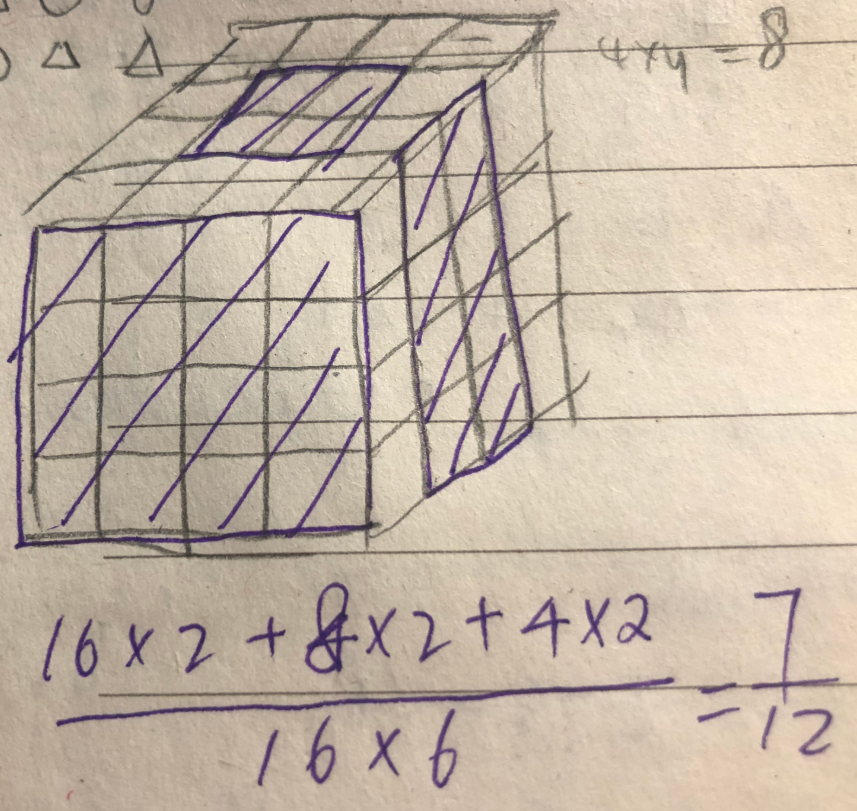 4×4 = 8
16 × 2 + 8×2 + 4×2
16 × 6
= 7
12